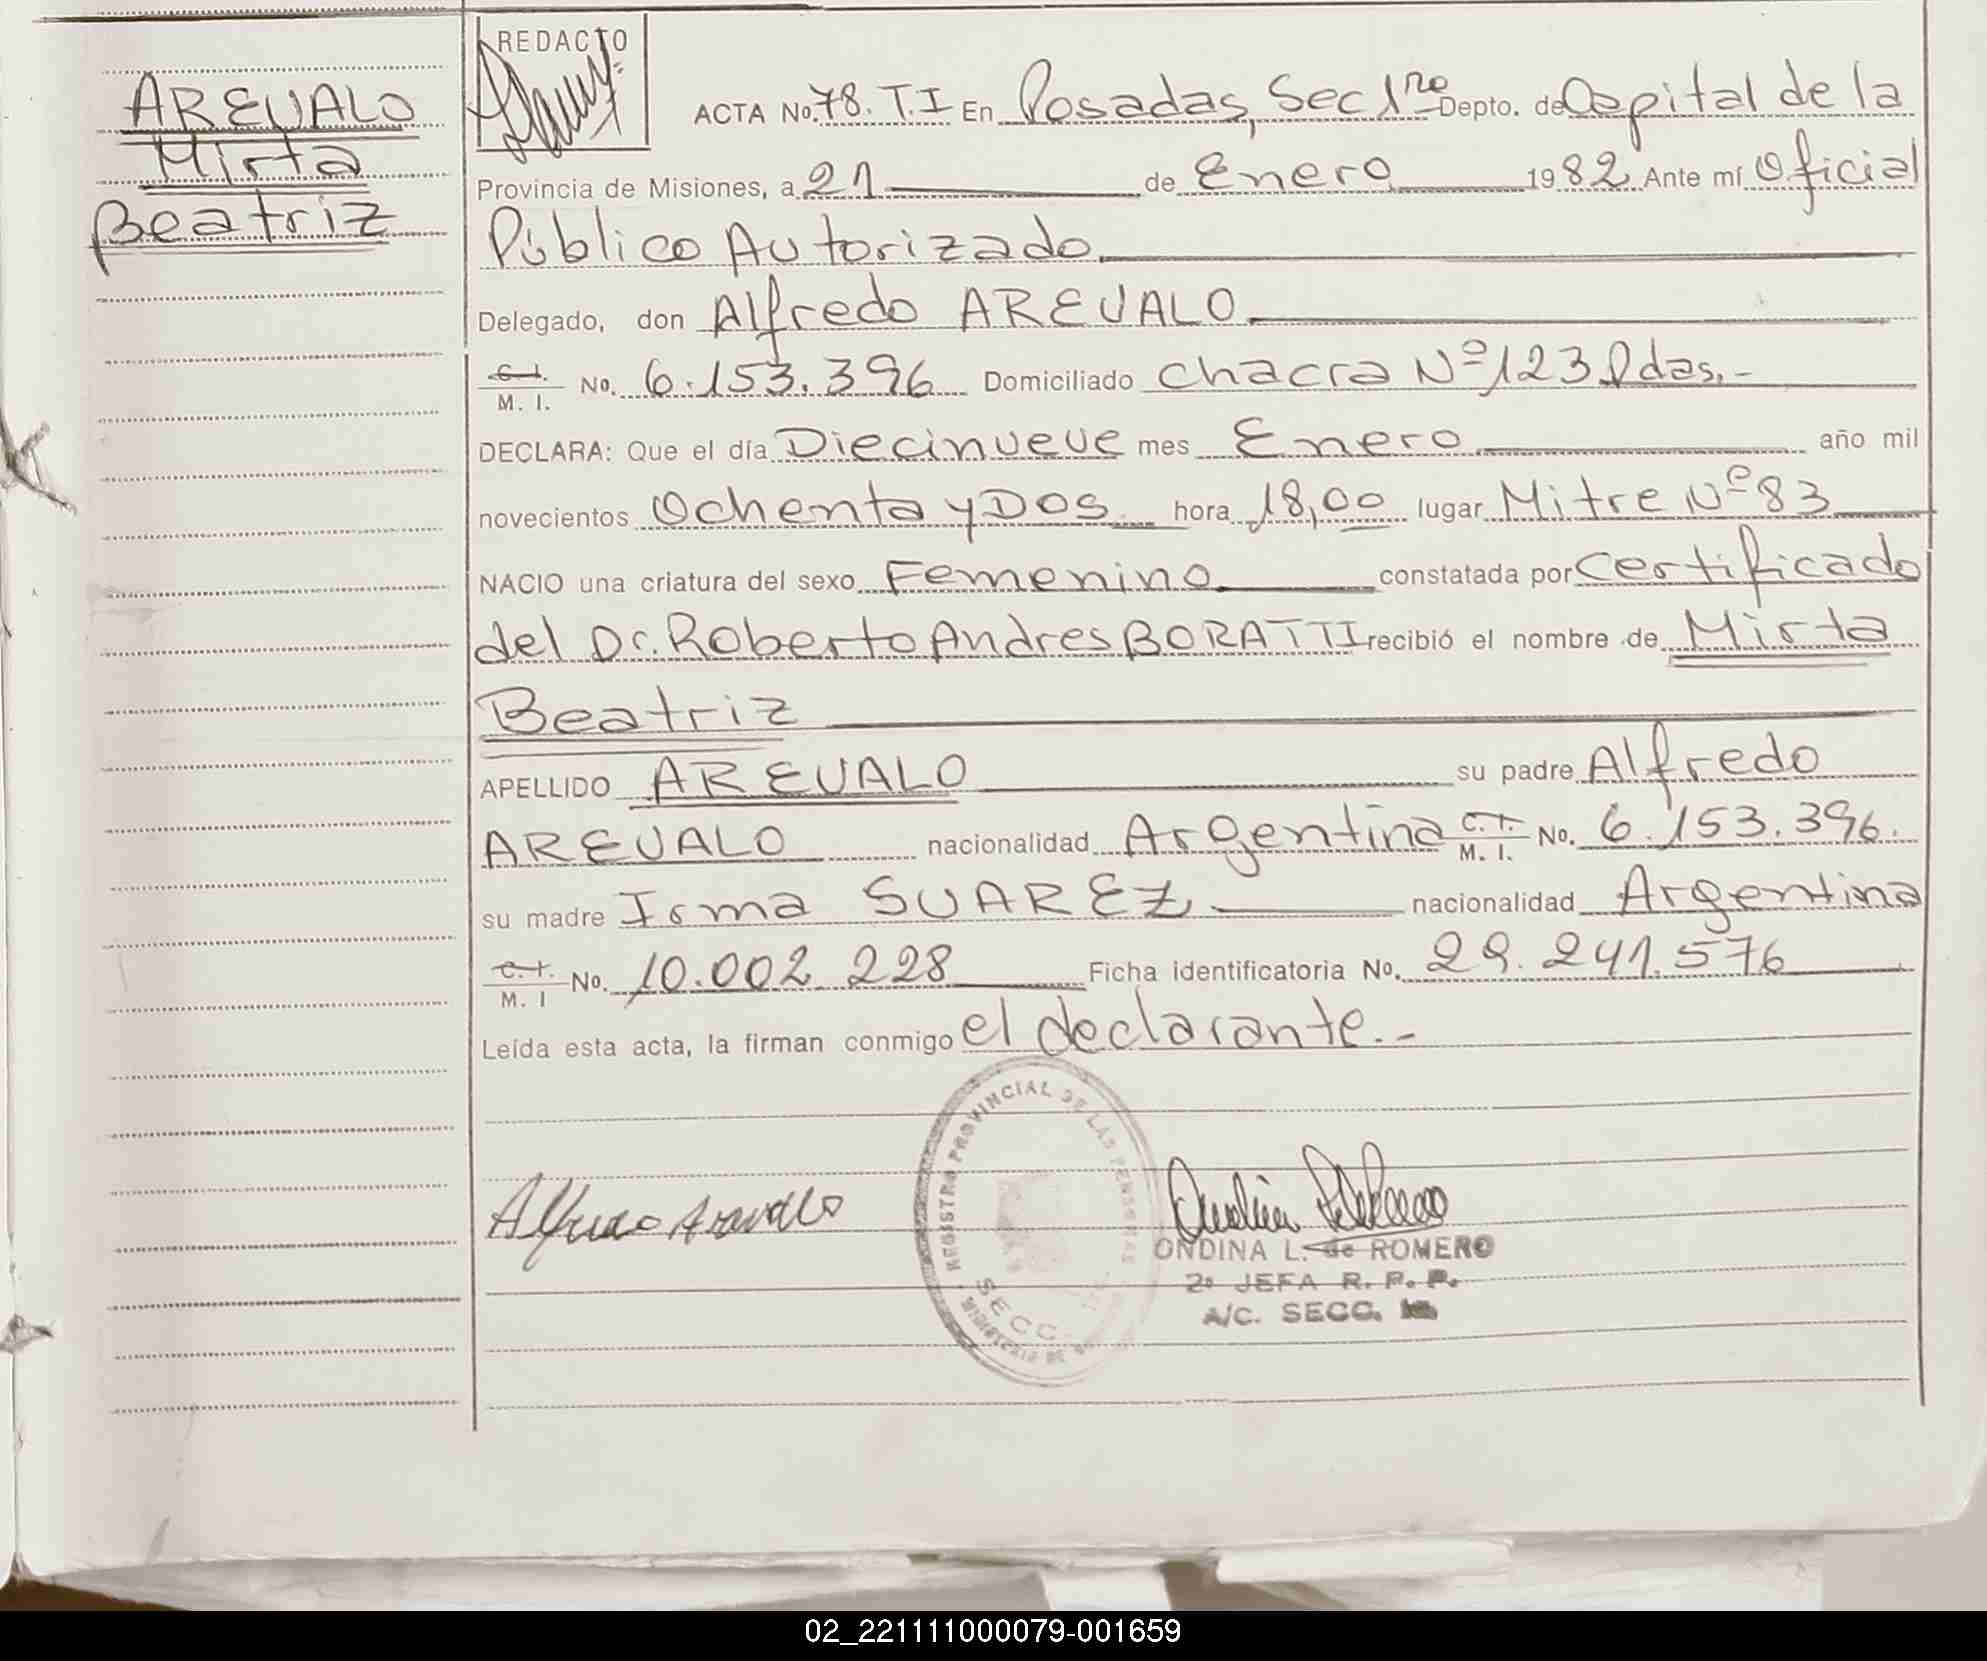 AREVALO
Mirta
Beatriz
REDACTO
ACTA No. 78. T. I En Posadas, Sec 1ra Depto. de Capital de la
Provincia de Misiones, a 21 de Enero 1982 Ante mí Oficial
Público Autorizado.
Delegado, don Alfredo AREVALO
C. I.
M. I. No. 6.153.396 Domiciliado Chacra Nº 123 Pdas.-
DECLARA: Que el día Diecinueve mes Enero año mil
novecientos Ochenta y DOS hora 18,00 lugar Mitre Nº 83
NACIO una criatura del sexo Femenino constatada por Certificado
del Dr. Roberto Andres BORATTI recibió el nombre de Mirta
Beatriz
APELLIDO AREVALO su padre Alfredo
AREVALO nacionalidad Argentina C. I. M. I. No. 6.153.396.
su madre Irma SUAREZ nacionalidad Argentina
C. I.
M. I No. 10.002 228 Ficha identificatoria No. 29.241.576
Leída esta acta, la firman conmigo el declarante.-
REGISTRO PROVINCIAL DE LAS PERSONAS
SECC.
MINISTERIO DE
Alfredo Arevalo
ONDINA L. de ROMERO
2º JEFA R. P. P.
A/C. SECC.
02_221111000079-001659